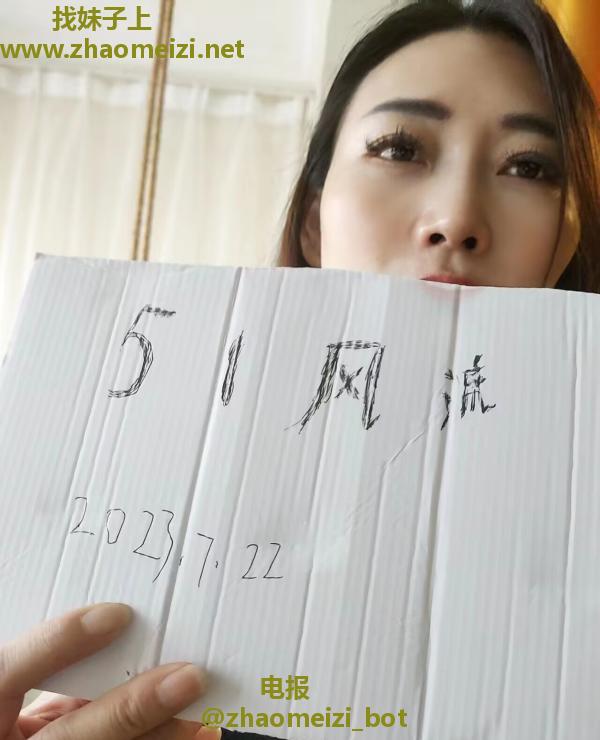 找妹子上
www.zhaomeizi.net
51风流
2023.7.22
电报
@zhaomeizi_bot